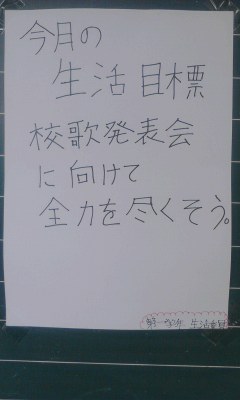 今月の
生活目標
校歌発表会
に向けて
全力を尽くそう。
第一学年 生活委員